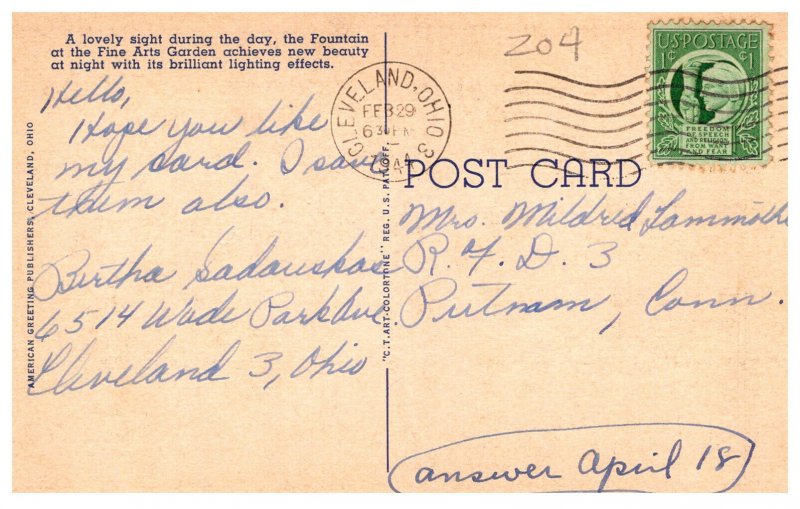 A lovely sight during the day, the Fountain
at the Fine Arts Garden achieves new beauty
at night with its brilliant lighting effects.
Hello,
Hope you like
my card. I save
them also.
Bertha Sadauskas
6514 Wade Park Ave.
Cleveland 3, Ohio
AMERICAN GREETING PUBLISHERS, CLEVELAND, OHIO
"C.T. ART-COLORTONE" REG. U.S. PAT. OFF.
204
CLEVELAND, OHIO 3
FEB 29
630 PM
1944
U.S. POSTAGE
1¢ 1¢
FREEDOM
OF SPEECH
AND RELIGION
FROM WANT
AND FEAR
POST CARD
Mrs. Mildred
R. F. D. 3
Putnam, Conn.
answer April 18